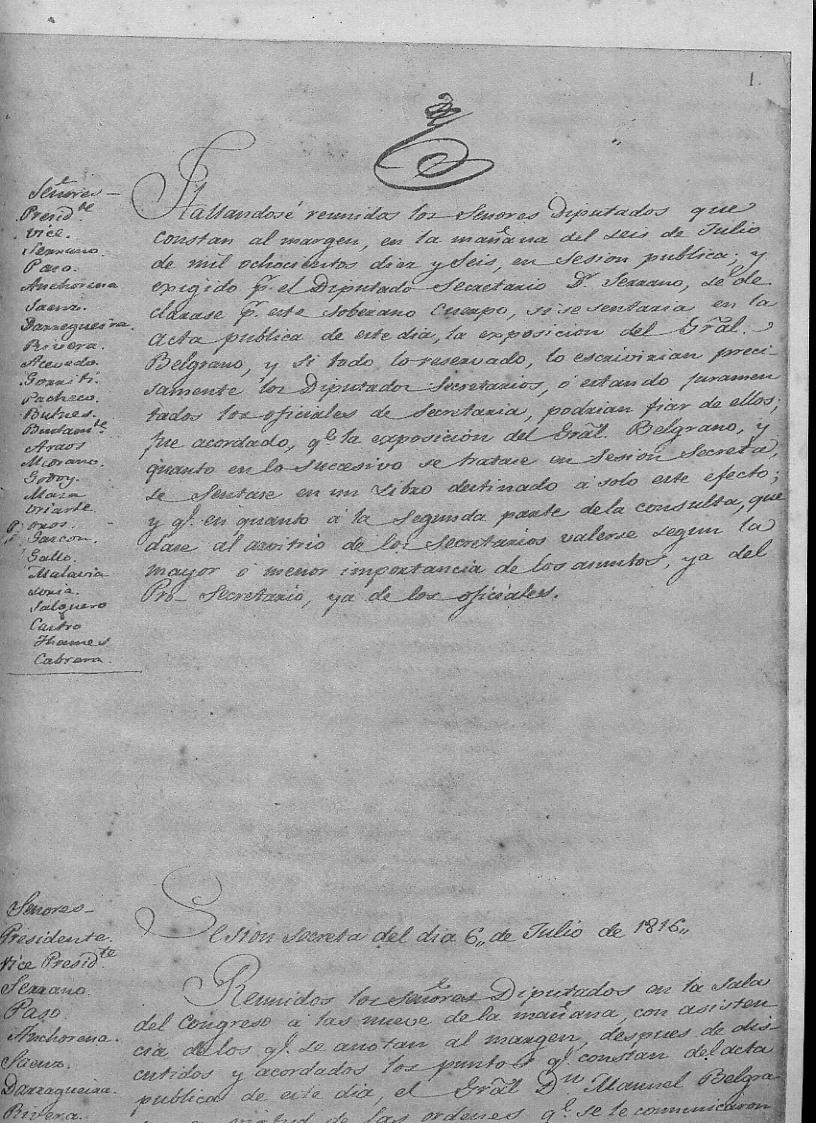 1.
Señores
Presid.te
Vice.
Serrano.
Paso.
Anchorena
Saenz.
Darregueira.
Rivera.
Acevedo.
Gorriti.
Pacheco.
Bulnes.
Bustam.te
Araos
Morano.
Godoy.
Maza
Uriarte
Oros.
Gascon.
Gallo.
Malavia
Loria.
Salguero
Castro
Thames
Cabrera.
Hallandosé reunidos los Señores Diputados que
constan al margen, en la mañana del seis de Julio
de mil ochocientos diez y seis, en sesion publica; y
exigido p.r el Diputado Secretario D.r Serrano, se de
clarase p.r este Soberano Cuerpo, si se sentaria en la
acta publica de este dia, la exposicion del Grãl.
Belgrano, y si todo lo reservado, lo escrivirian preci
samente los Diputados Secretarios, ó estando juramen
tados los oficiales de Secretaria, podrian fiar de ellos;
fue acordado, q.e la exposición del Grãl. Belgrano, y
quanto en lo sucesivo se tratase en Sesión Secreta,
se sentase en un Libro destinado á solo este efecto;
y q.e en quanto á la segunda parte de la consulta, que
dase al arvitrio de los Secretarios valerse segun la
mayor ó menor importancia de los asuntos, ya del
Pro-Secretario, ya de los oficiales.
Señores
Presidente.
Vice Presid.te
Serrano.
Paso.
Anchorena.
Saenz.
Darragueira.
Rivera.
Sesion secreta del dia 6,, de Julio de 1816,,
Reunidos los Señores Diputados en la Sala
del Congreso á las nueve de la mañana, con asisten
cia de los q.e se anotan al margen, despues de dis-
cutidos y acordados los puntos q.e constan del acta
publica de este dia, el Grãl D.n Manuel Belgra
de las ordenes q.e se le comunicaron